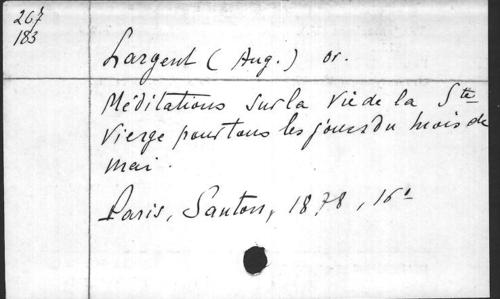 267
183
Largent (Aug.) or.
Méditations sur la vie de la Ste
Vierge pour tous les jours du mois de
mai.
Paris, Sauton, 1878, 16°